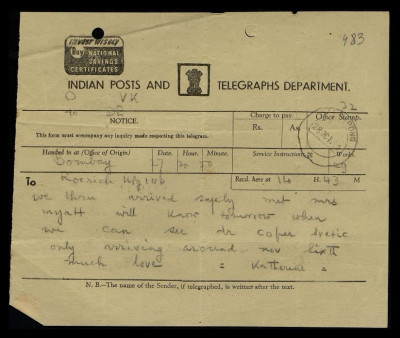 983
INVEST WISELY
Buy NATIONAL
SAVINGS
CERTIFICATES
INDIAN POSTS AND TELEGRAPHS DEPARTMENT.
O VK
22
NOTICE.
This form must accompany any inquiry made respecting this telegram.
Charge to pay
Rs. As.
Office Stamp.
Handed in at (Office of Origin) Date. Hour. Minute. Service Instructions Words.
Bombay 27 20 50
Recd. here at 14 H. 43 M.
To Roerich Kpg
we three arrived safely met mrs
myatt will know tomorrow when
we can see dr
only arriving around nov sixth
much love = Katherine =
N. B.—The name of the Sender, if telegraphed, is written after the text.